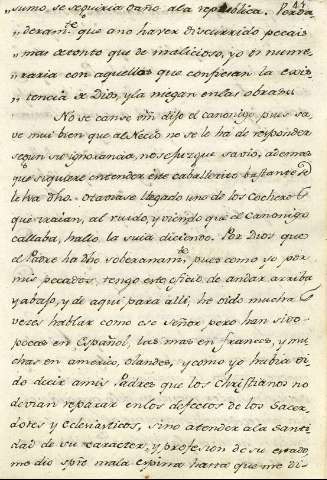 sumo, se seguiria daño a la republica. Verda
„ deram.te que a no haver discurrido pecais
„ mas de tonto que de malicioso, yo os nume
„ raria con aquellos que confiesan la exis
„ tencia de Dios, y la niegan en las obras.
No se canse vm dijo el canonigo pues sa
ve mui bien que al Necio no se le ha de responder
segun su ignorancia, no se juzgue savio, ademas
que si quiere entender este caballerito bastante se
le lva dho. Otavia se llegado uno de los Cocheros
que traian, al ruido, y viendo que el Canonigo
callaba, hallo la suia diciendo. Por Dios que
el Padre ha dho soberanam.te, pues como yo por
mis pecados, tengo este oficio de andar arriba
y abajo, y de aqui para alli, he oido muchas
veses hablar como ese señor pero han sido
pocas en Español, las mas en frances, y mu
chas en americo, olandes, y como yo habia oi
do decir a mis Padres que los Christianos no
devian reparar en los defectos de los Sacer
dotes y eclesiasticos, sino atender a la Santi
dad de su caracter, y profesion de su estado,
me dio spre mala espina hasta que me di-